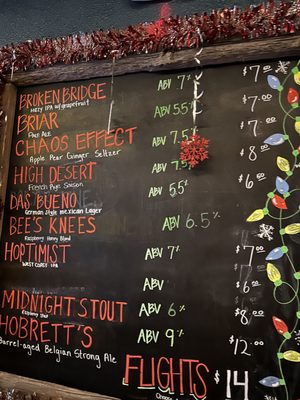 BROKEN BRIDGE ABV 7% $7.00
Hazy IPA w/grapefruit
BRIAR ABV 5.5% $7.00
Pale Ale
CHAOS EFFECT ABV 7.5% $7.00
Apple Pear Ginger Seltzer
HIGH DESERT ABV 7.5% $8.00
French Rye Saison
DAS BUENO ABV 5.5% $6.00
German Style Mexican Lager
BEE'S KNEES ABV 6.5%
Raspberry Honey Blond
HOPTIMIST ABV 7% $7.00
WEST COAST IPA
ABV $6.00
MIDNIGHT STOUT ABV 6% $8.00
Stout
HOBRETT'S ABV 9% $12.00
Barrel-aged Belgian Strong Ale
FLIGHTS $14
Choose